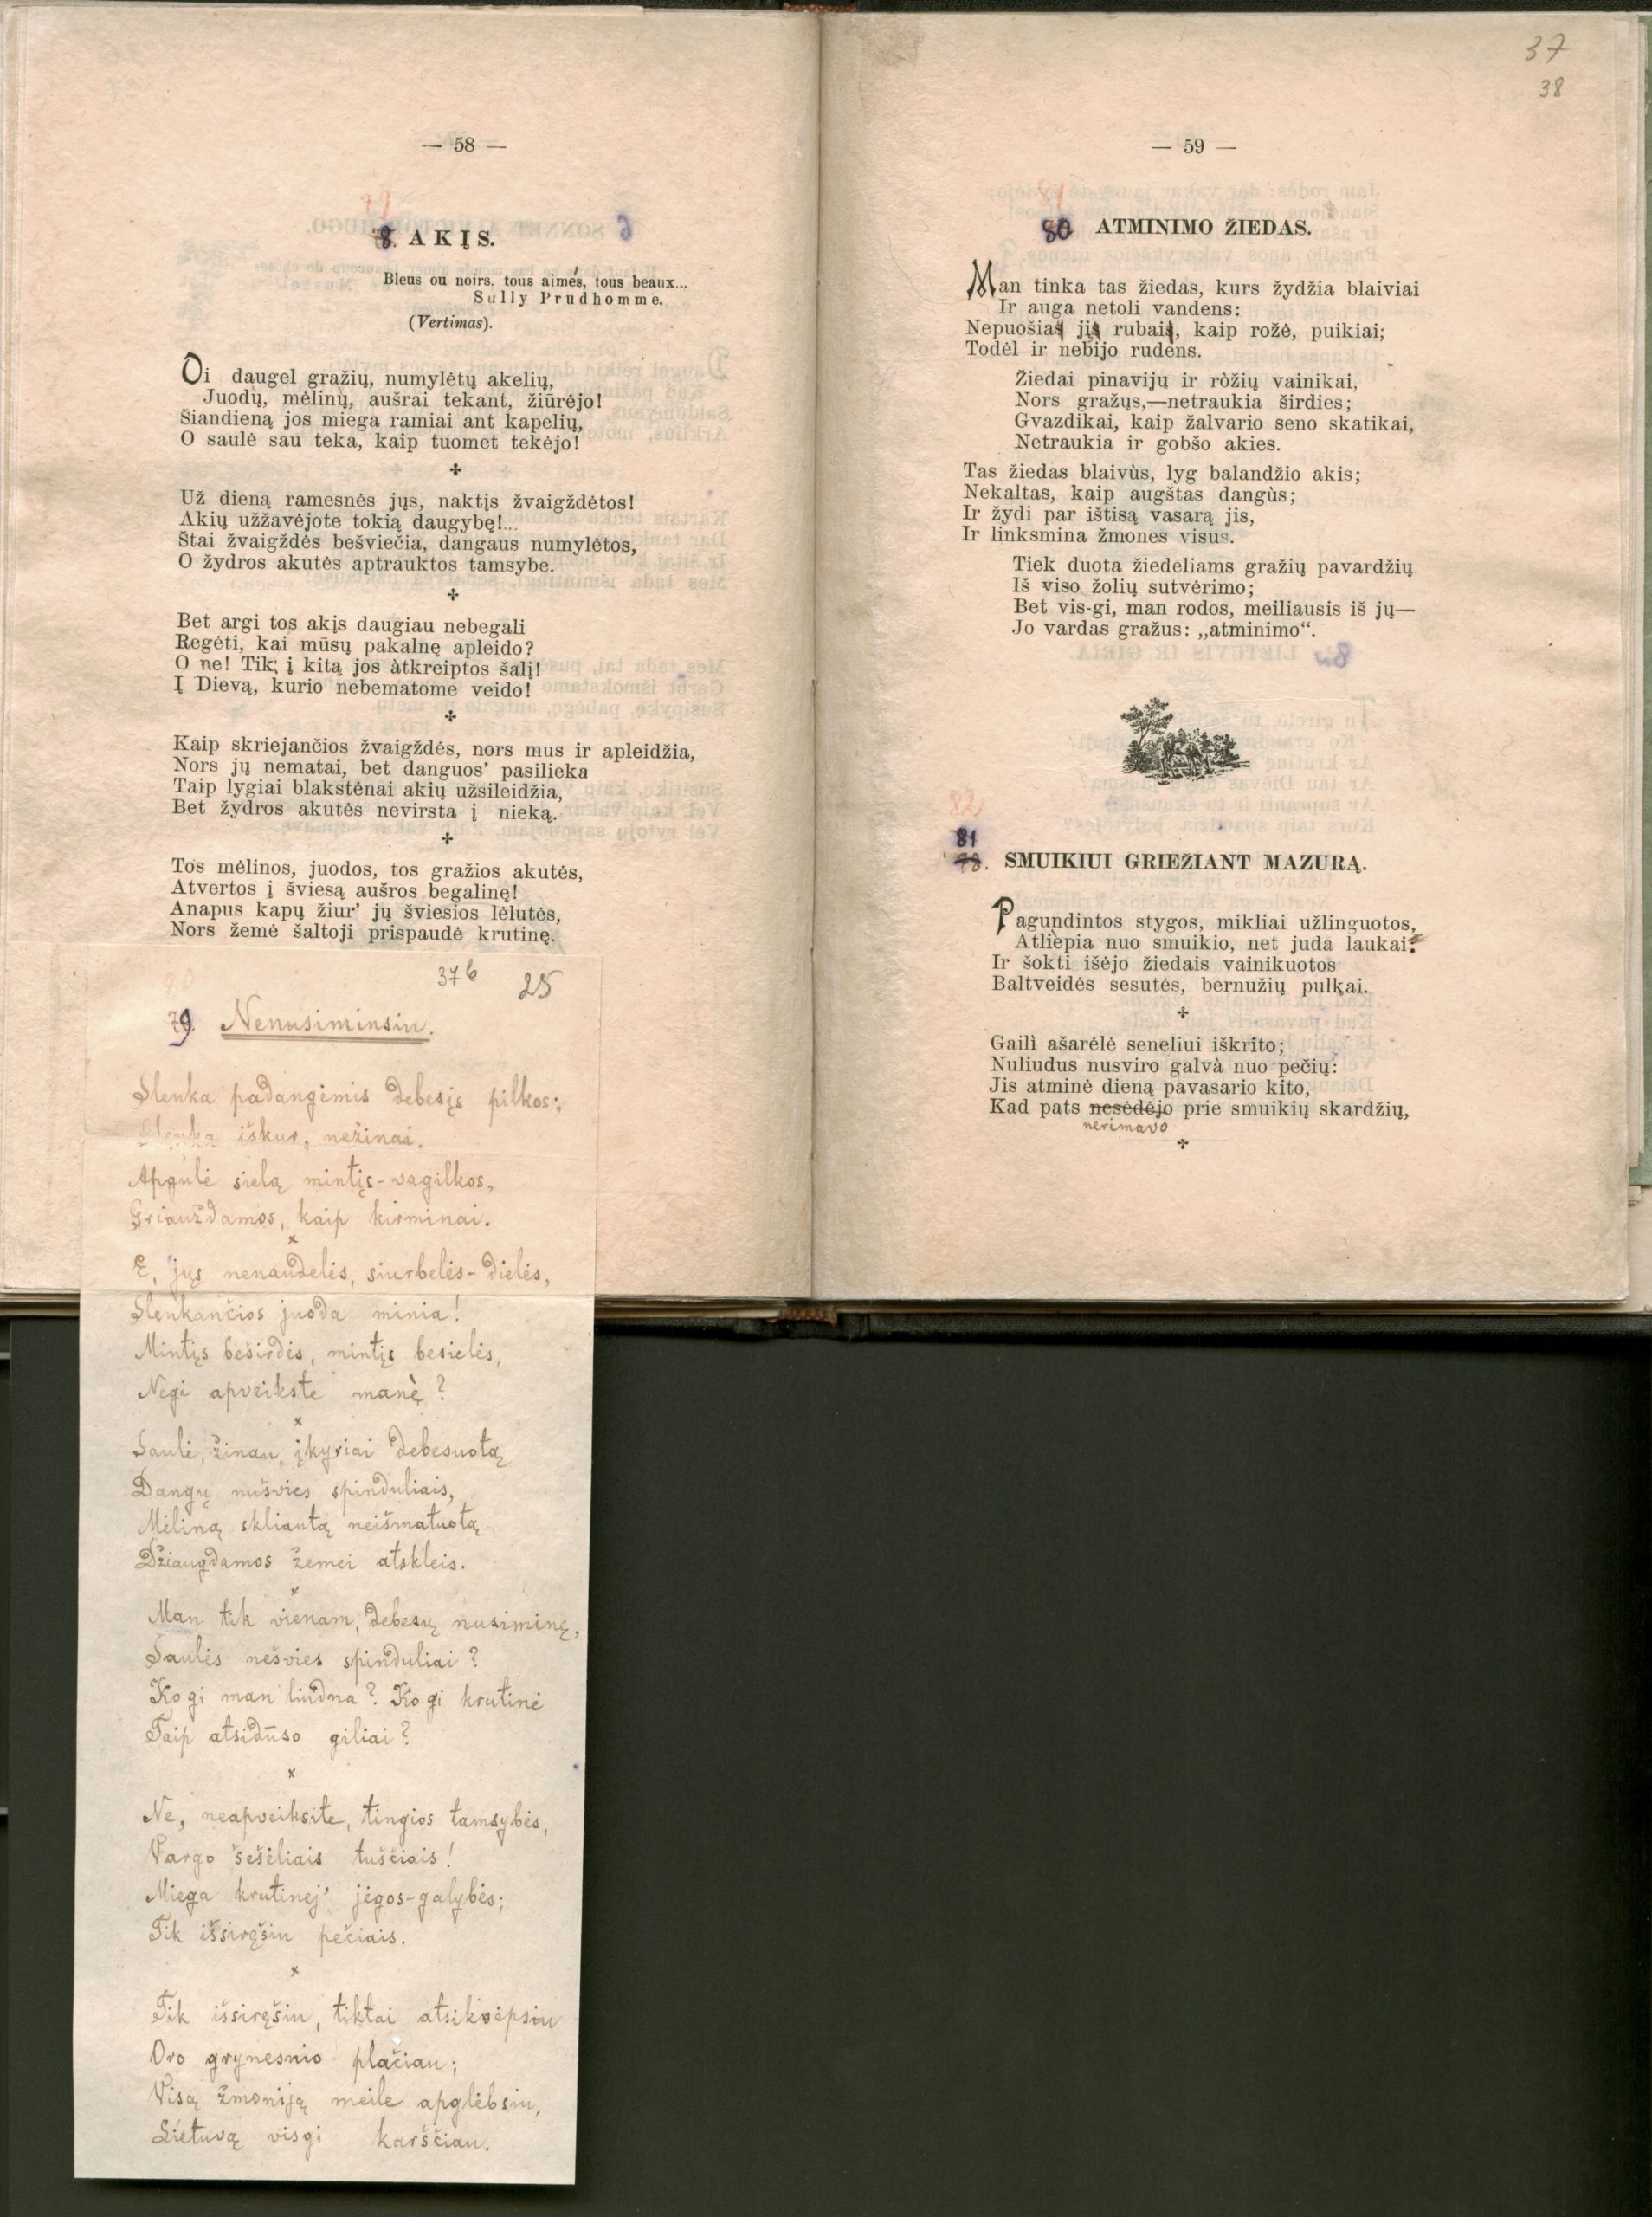 — 58 —
79
8. AKĮS.
Bleus ou noirs, tous aimés, tous beaux...
Sully Prudhomme.
(Vertimas).
Oi daugel gražių, numylėtų akelių,
Juodų, mėlinų, aušrai tekant, žiūrėjo!
Šiandieną jos miega ramiai ant kapelių,
O saulė sau teka, kaip tuomet tekėjo!
Už dieną ramesnės jųs, naktįs žvaigždėtos!
Akių užžavėjote tokią daugybę!...
Štai žvaigždės bešviečia, dangaus numylėtos,
O žydros akutės aptrauktos tamsybe.
Bet argi tos akįs daugiau nebegali
Regėti, kai mūsų pakalnę apleido?
O ne! Tik į kitą jos àtkreiptos šalį!
Į Dievą, kurio nebematome veido!
Kaip skriejančios žvaigždės, nors mus ir apleidžia,
Nors jų nematai, bet danguos’ pasilieka
Taip lygiai blakstėnai akių užsileidžia,
Bet žydros akutės nevirsta į nieką.
Tos mėlinos, juodos, tos gražios akutės,
Atvertos į šviesą aušros begalinę!
Anapus kapų žiur’ jų šviesios lėlutės,
Nors žemė šaltoji prispaudė krutinę.
37b 25
80
79. Nenusiminsiu.
Slenka padangimis debesįs pilkos;
Slenka iškur, nežinai.
Apgulė sielą mintįs-vagilkos,
Griauždamos, kaip kirminai.
x
E, jųs nenaudelės, siurbelės-dielės,
Slenkančios juoda minia!
Mintįs beširdės, mintįs besielės,
Negi apveikste manè?
x
Saulė, žinau, įkyriai debesuotą
Dangų nušvies spinduliais,
Mėliną skliautą neišmatuotą
Džiaugdamos žemei atskleis.
x
Man tik vienam, debesų nusiminę,
Saulės nešvies spinduliai?
Ko gi man liūdna? Ko gi krutinė
Taip atsidūso giliai?
x
Ne, neapveiksite, tingios tamsybės,
Vargo šešėliais tuščiais!
Miega krutinėj’ jėgos-galybės;
Tik išsiręšiu pečiais.
x
Tik išsiręšiu, tiktai atsikvėpsiu
Oro grynesnio plačiau;
Visą žmoniją meile apglėbsiu,
Lietuvą visgi karščiau.
37
38
— 59 —
81
80 ATMINIMO ŽIEDAS.
Man tinka tas žiedas, kurs žydžia blaiviai
Ir auga netoli vandens:
Nepuošias jis rubais, kaip rožė, puikiai;
Todėl ir nebijo rudens.
Žiedai pinavijų ir ròžių vainikai,
Nors gražųs,—netraukia širdies;
Gvazdikai, kaip žalvario seno skatikai,
Netraukia ir gobšo akies.
Tas žiedas blaivùs, lyg balandžio akis;
Nekaltas, kaip augštas dangùs;
Ir žydi par ištisą vasarą jis,
Ir linksmina žmones visus.
Tiek duota žiedeliams gražių pavardžių
Iš viso žolių sutvėrimo;
Bet vis-gi, man rodos, meiliausis iš jų—
Jo vardas gražus: „atminimo“.
82
81
78. SMUIKIUI GRIEŽIANT MAZURĄ.
Pagundintos stygos, mikliai užlinguotos,
Atliepia nuo smuikio, net juda laukai:
Ir šokti išėjo žiedais vainikuotos
Baltveidės sesutės, bernužių pulkai.
Gailì ašarėlė seneliui iškrito;
Nuliudus nusviro galvà nuo pečių:
Jis atminė dieną pavasario kito,
Kad pats nesėdėjo prie smuikių skardžių,
nerimavo